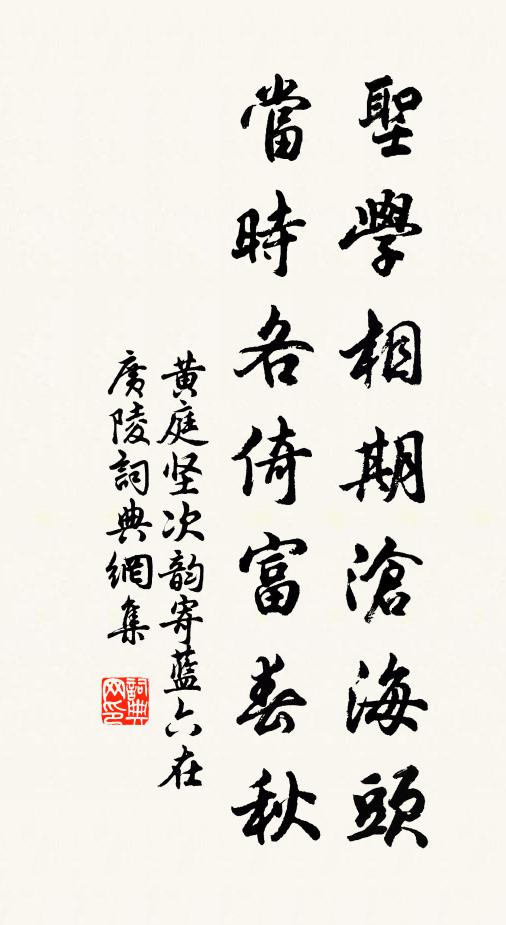 聖學相期滄海頭
當時各倚富春秋
黄庭坚次韵寄藍六在
廣陵詞典網集
詞典网印